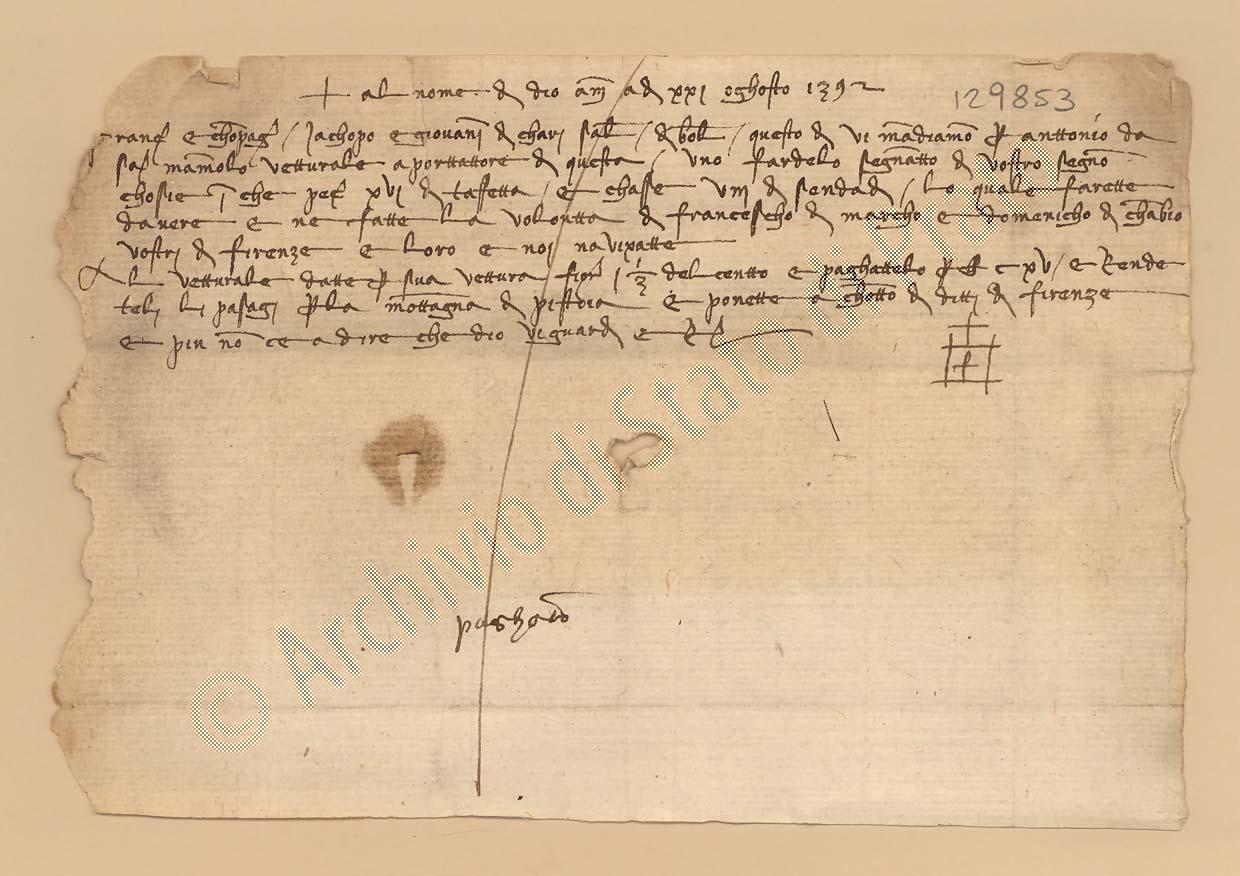 + al nome d dio am ad xxi oghosto 1392
129853
Franc e chopag / Jachopo e giovani d chari sal / d bol / questo d vi mandiamo p anttonio da
sa mamolo vetturale aporttattore d questa / uno fardelo segnatto d vostro segno
chosie i che pec xvi d taffetta / e chasse viiii d sendad / lo quale farette
davere e ne fatte la volontta d francescho d marcho e domenicho d chabio
vostri d firenze e loro e noi navixatte
Al vetturale datte p sua vettura fior i ½ del centto e paghattelo p lb cxv / e rende
teli li pasagi p la mottagna d pistoia e ponette a chotto d ditti d firenze
e piu no ce a dire che dio vi guard e R
f
paghato
© Archivio di Stato di Prato